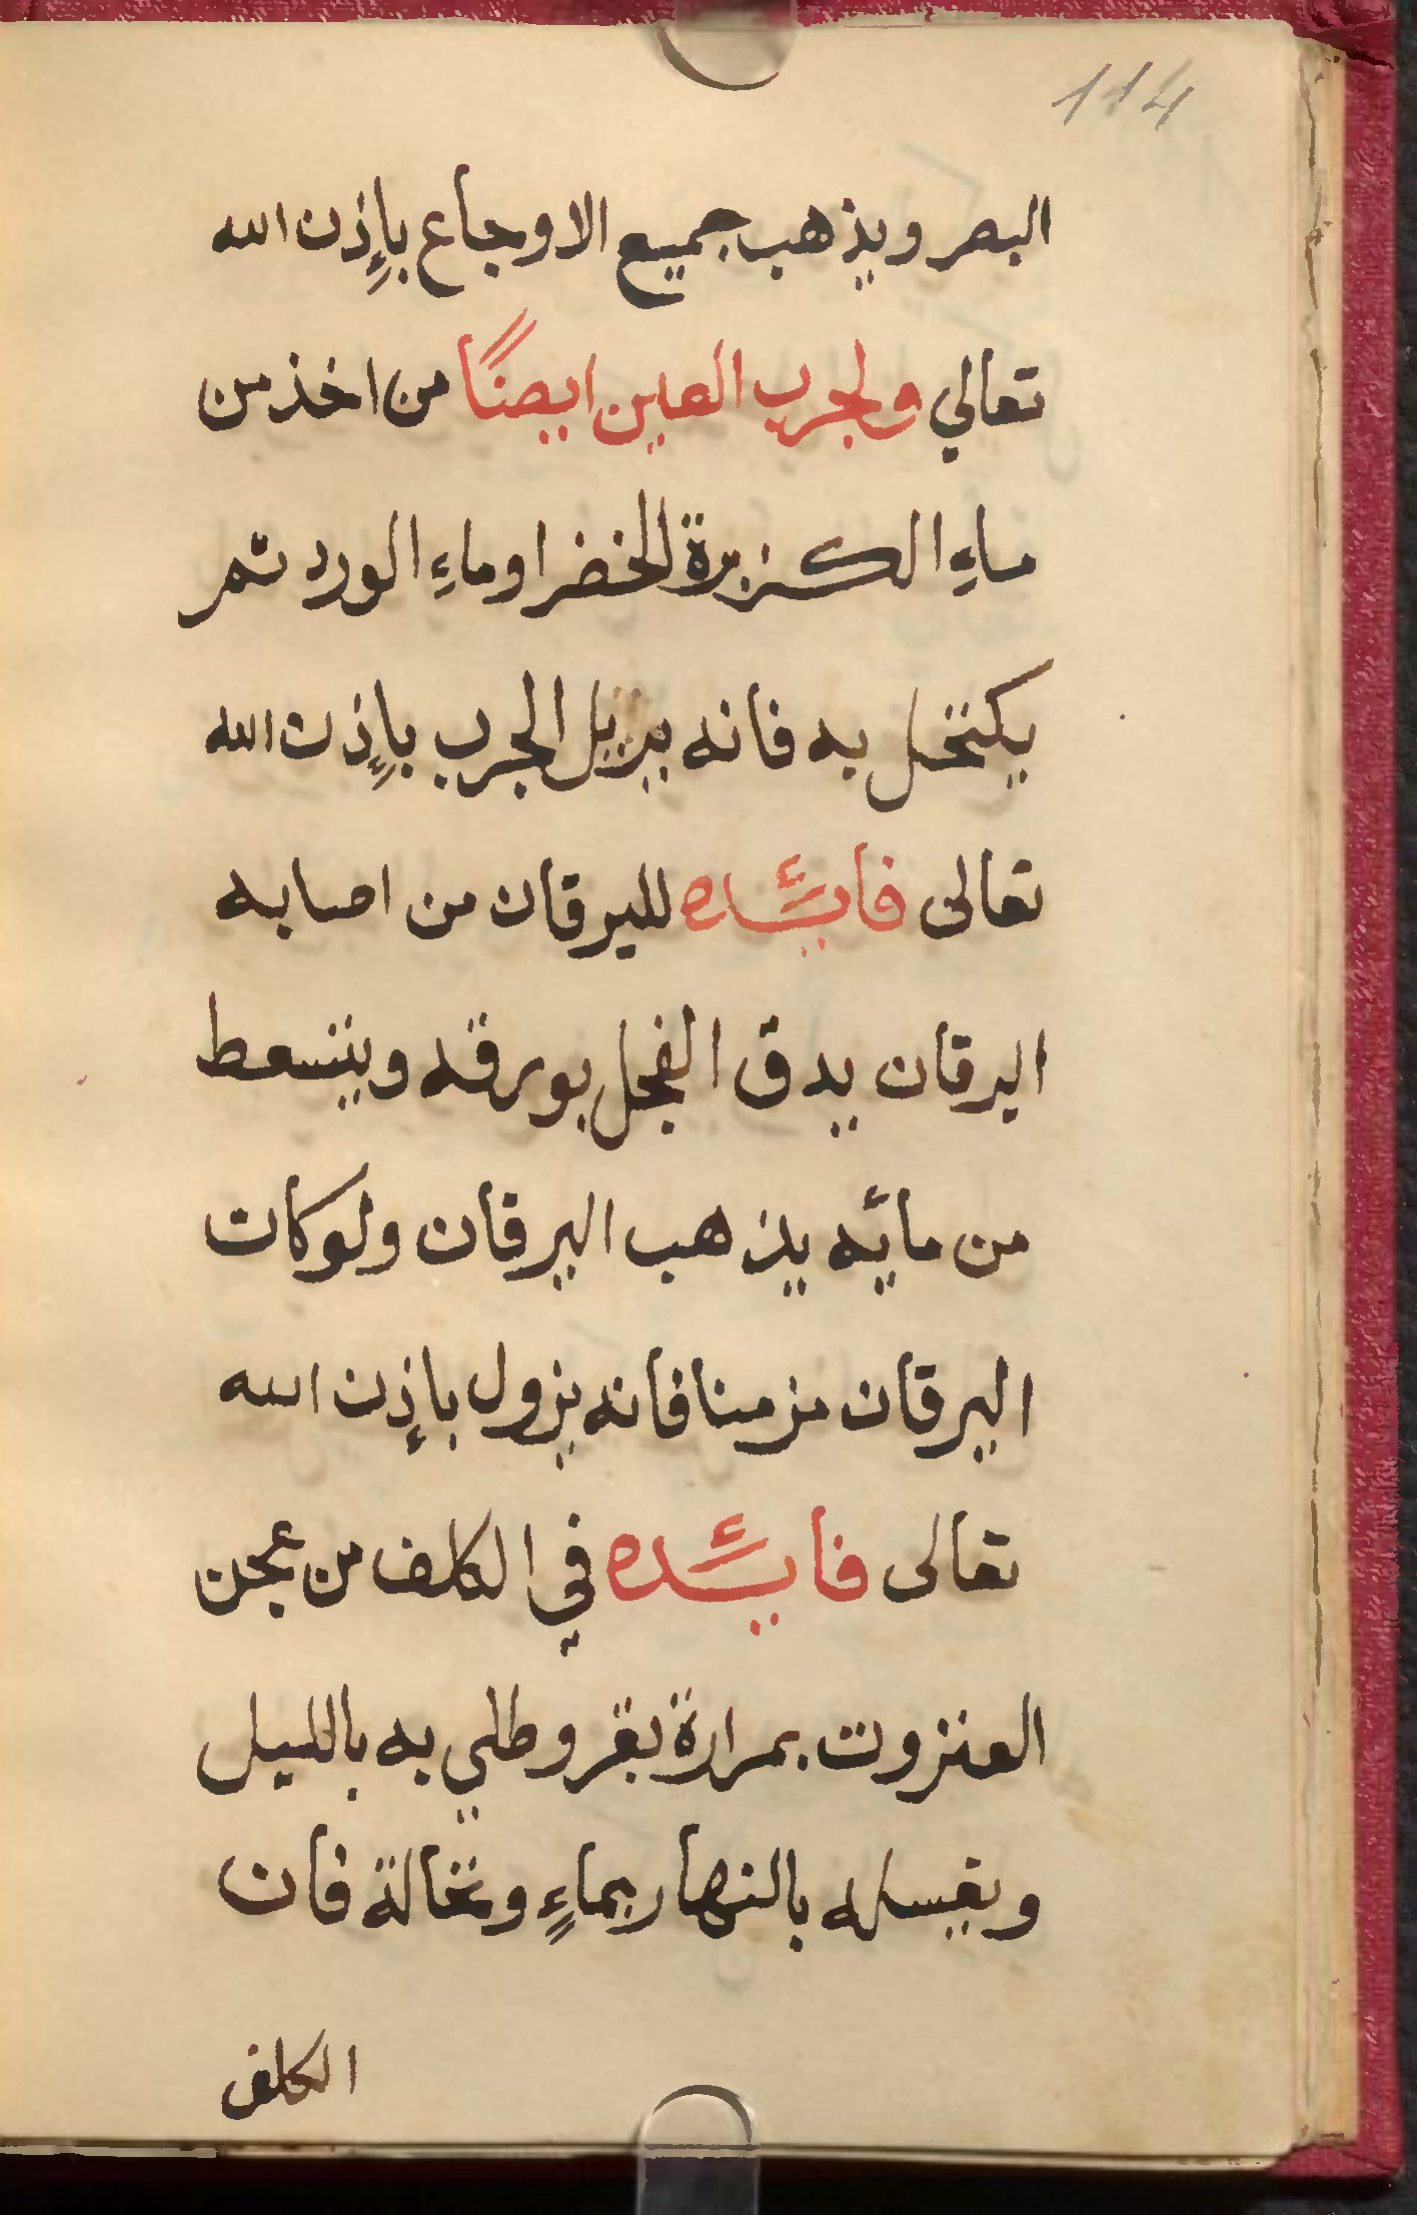 114
البصر ويذهب جميع الاوجاع بإذن الله
تعالي ولجرب العين ايضًا من اخذ من
ماءِ الكزبرة الخضرا وماءِ الورد ثم
يكتحل به فانه يزيل الجرب بإذن الله
تعالى فائده لليرقان من اصابه
اليرقان يدق الفجل بورقه ويتسعط
من مائه يذهب اليرقان ولو كان
اليرقان مزمنا فانه يزول بإذن الله
تعالى فائده في الكلف من عجن
العنزروت بمرارة بقر وطلي به بالليل
ويغسله بالنهار بماءٍ ونخالة فان
الكلف